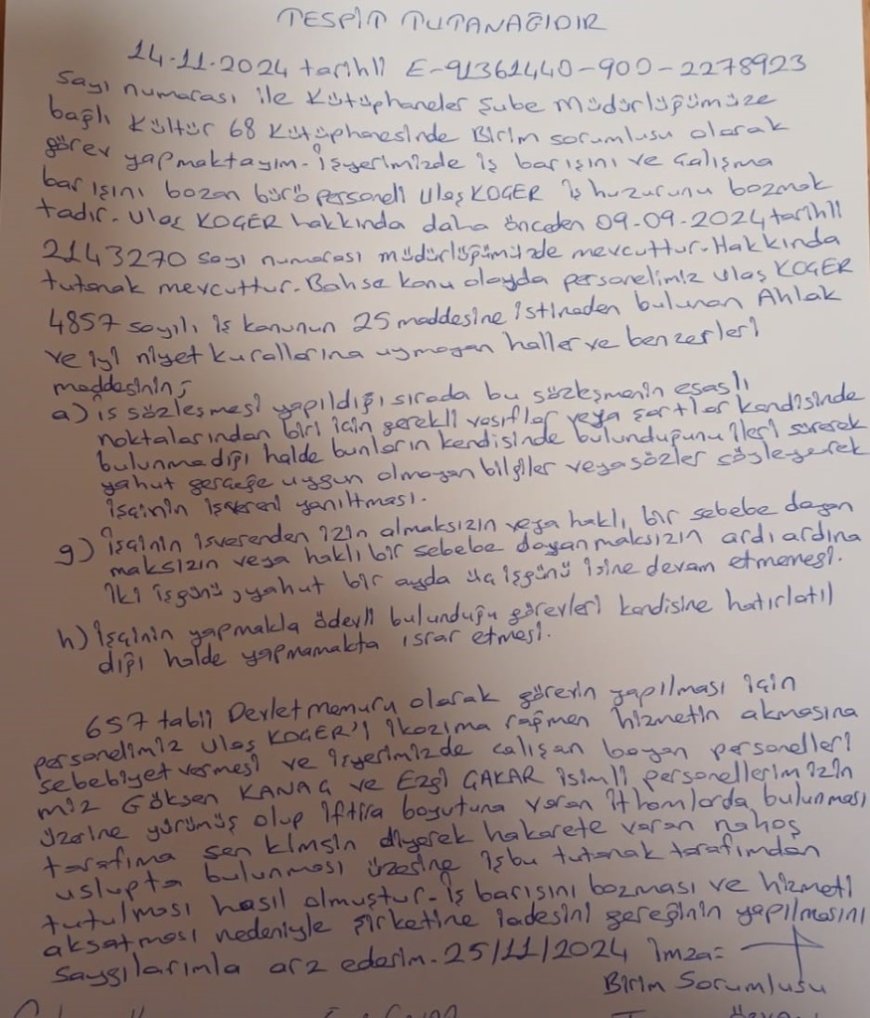 TESPİT TUTANAĞIDIR
14.11.2024 tarihli E-91361440-900-2278923
sayı numarası ile Kütüphaneler Şube Müdürlüğümüze
bağlı Kültür 68 Kütüphanesinde Birim sorumlusu olarak
görev yapmaktayım. İşyerimizde iş barışını ve çalışma
barışını bozan büro personeli Ulaş KOGER iş huzurunu bozmak
tadır. Ulaş KOGER hakkında daha önceden 09.09.2024 tarihli
2143270 sayı numarası müdürlüğümüzde mevcuttur. Hakkında
tutanak mevcuttur. Bahse konu olayda personelimiz Ulaş KOGER
4857 sayılı iş kanunun 25 maddesine istineden bulunan Ahlak
ve iyi niyet kurallarına uymayan haller ve benzerleri
maddesinin;
a) iş sözleşmesi yapıldığı sırada bu sözleşmenin esaslı
noktalarından biri için gerekli vasıflar veya şartlar kendisinde
bulunmadığı halde bunların kendisinde bulunduğunu ileri sürerek
yahut gerçeğe uygun olmayan bilgiler veya sözler söyleyerek
işçinin işvereni yanıltması.
g) İşçinin işverenden izin almaksızın veya haklı, bir sebebe dayan
maksızın veya haklı bir sebebe dayanmaksızın ardı ardına
iki işgünü, yahut bir ayda üç işgünü işine devam etmemesi.
h) İşçinin yapmakla ödevli bulunduğu görevleri kendisine hatırlatıl
dığı halde yapmamakta ısrar etmesi.
657 tabii Devlet memuru olarak görevin yapılması için
personelimiz Ulaş KOGER'i ikazıma rağmen hizmetin akmasına
sebebiyet vermesi ve işyerimizde çalışan bayan personelleri
miz Gökşen KANAG ve Ezgi ÇAKAR isimli personellerimizin
üzerine yürümüş olup iftira boyutuna varan ithamlarda bulunması
tarafıma sen kimsin diyerek hakarete varan nahoş
uslupta bulunması üzerine işbu tutanak tarafımdan
tutulması hasıl olmuştur. İş barışını bozması ve hizmeti
aksatması nedeniyle şirketine iadesini gereğinin yapılmasını
saygılarımla arz ederim. 25/11/2024 İmza=
Birim Sorumlusu